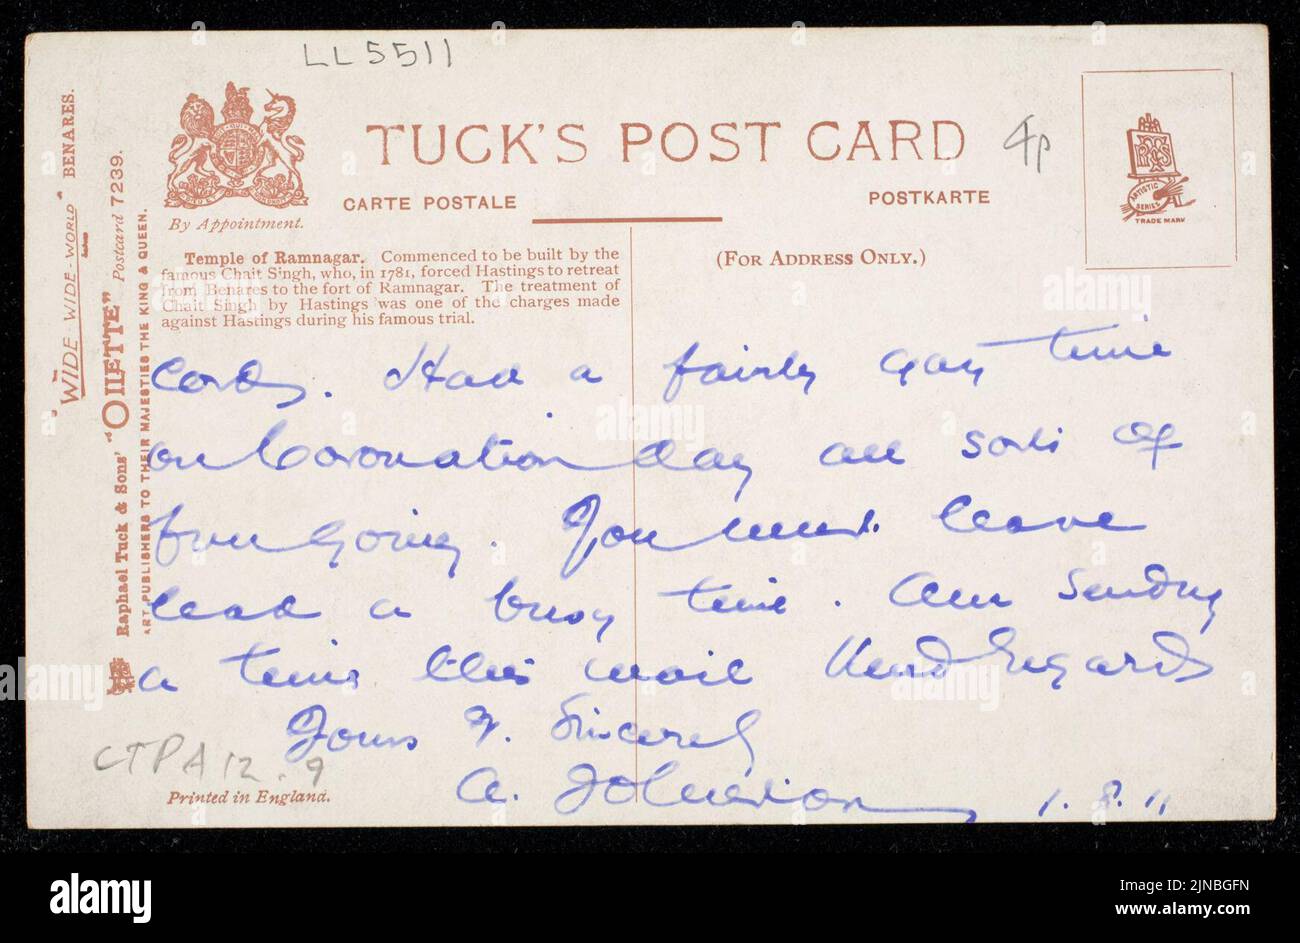 LL5511
TUCK'S POST CARD
4p
CARTE POSTALE
POSTKARTE
By Appointment.
ARTISTIC SERIES
TRADE MARK
"WIDE-WIDE-WORLD" BENARES.
Raphael Tuck & Sons' "OILETTE" Postcard 7239.
ART PUBLISHERS TO THEIR MAJESTIES THE KING & QUEEN.
Temple of Ramnagar. Commenced to be built by the
famous Chait Singh, who, in 1781, forced Hastings to retreat
from Benares to the fort of Ramnagar. The treatment of
Chait Singh by Hastings was one of the charges made
against Hastings during his famous trial.
(FOR ADDRESS ONLY.)
cards. Had a fairly gay time
on Coronation day all sorts of
fun going. You must have
lead a busy time. Am sending
a this mail Kind Regards
Yours v. Sincerely
A. Johnston 1.8.11
CTPA 12.9
Printed in England.
alamy
Image ID: 2JNBGFN
www.alamy.com